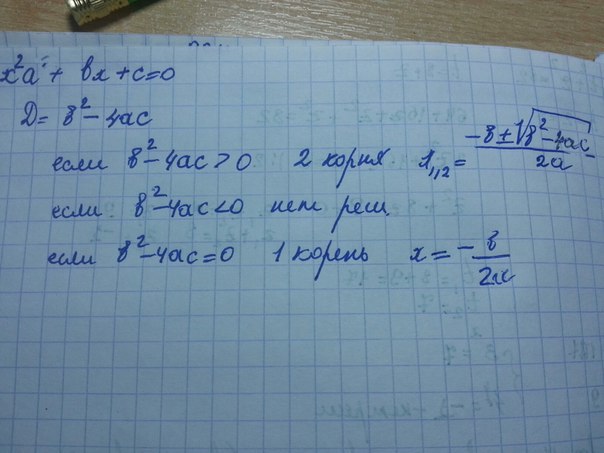 x²a + bx + c = 0
D = b² - 4ac
если b² - 4ac > 0 2 корня x₁,₂ = (-b ± √(b² - 4ac)) / 2a
если b² - 4ac < 0 нет реш
если b² - 4ac = 0 1 корень x = - b / 2x